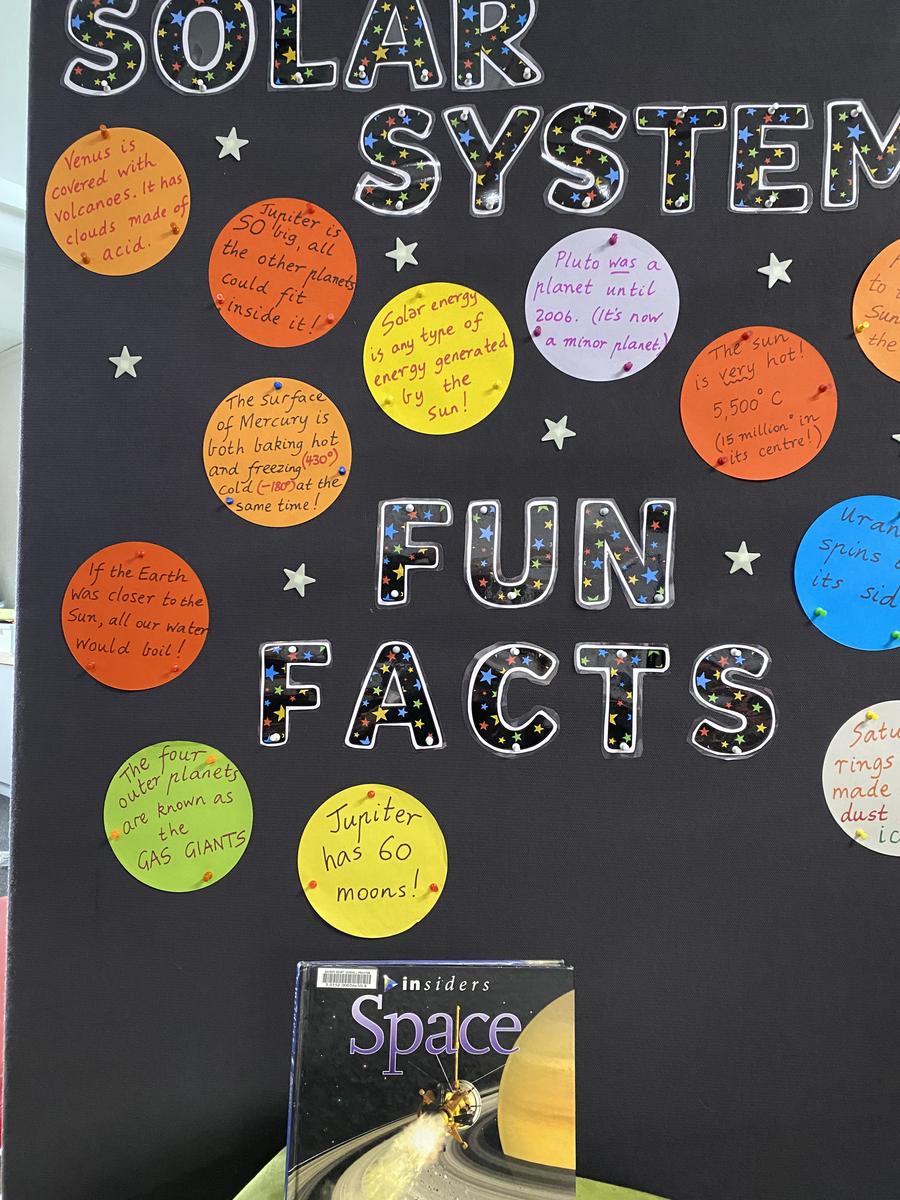 SOLAR
SYSTEM
Venus is
covered with
volcanoes. It has
clouds made of
acid.
Jupiter is
SO big, all
the other planets
could fit
inside it!
Solar energy
is any type of
energy generated
by the
sun!
Pluto was a
planet until
2006. (It's now
a minor planet.)
The sun
is very hot!
5,500° C
(15 million° in
its centre!)
to
Sun
the
The surface
of Mercury is
both baking hot
and freezing (430°)
cold (-180°) at the
same time!
FUN
FACTS
If the Earth
was closer to the
Sun, all our water
would boil!
Uran
spins
its sid
The four
outer planets
are known as
the
GAS GIANTS
Jupiter
has 60
moons!
Satu
rings
made
dust
ic
insiders
Space